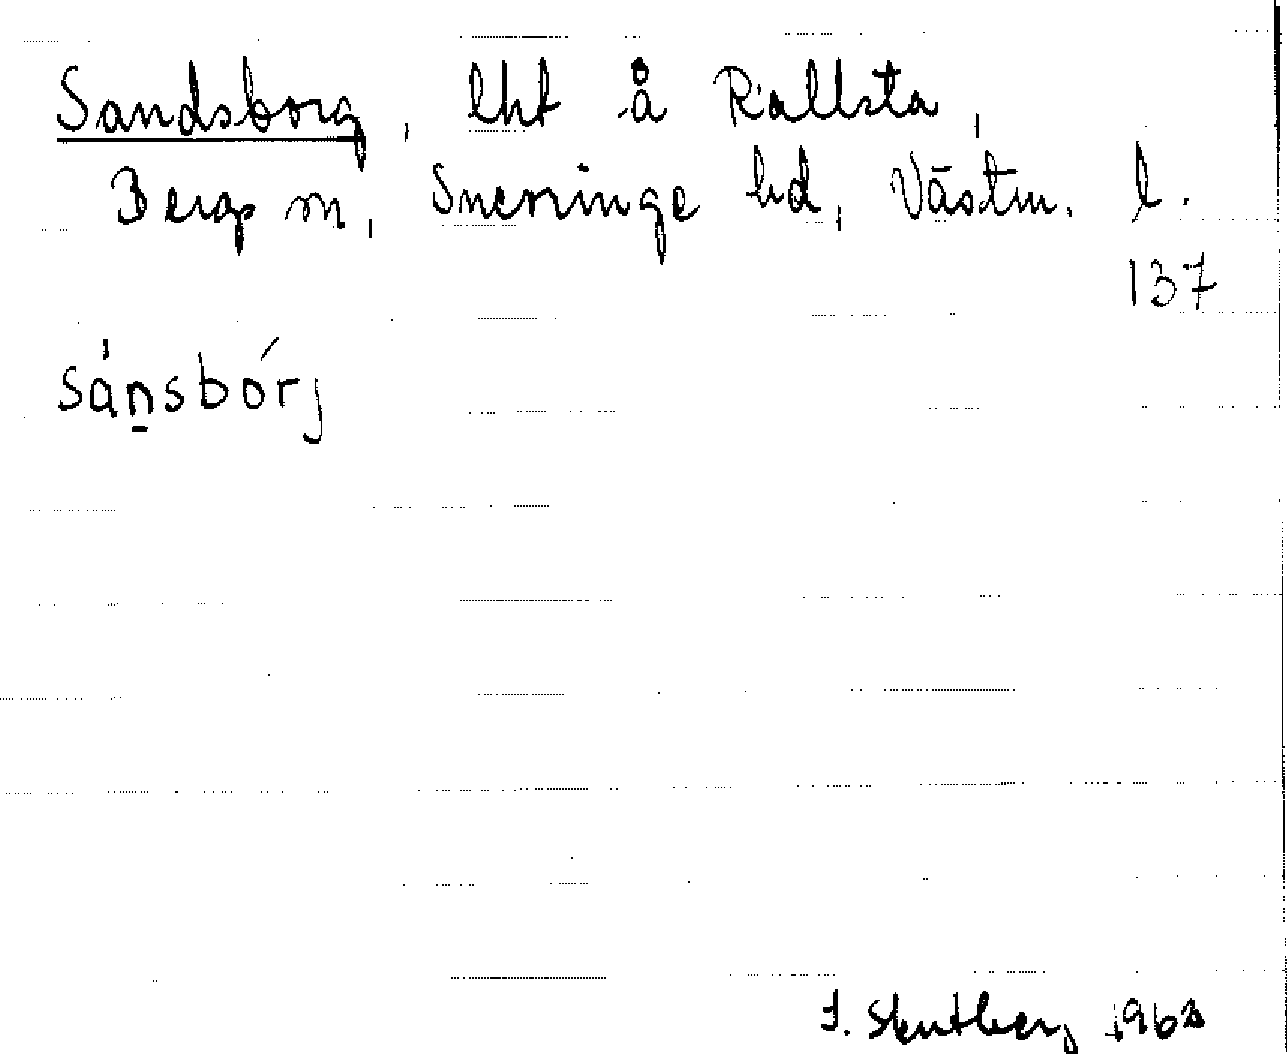 Sandsborg, lht å Rallsta,
Bergs sn, Snevringe hd, Västm. l.
137
sánsbórj
1963